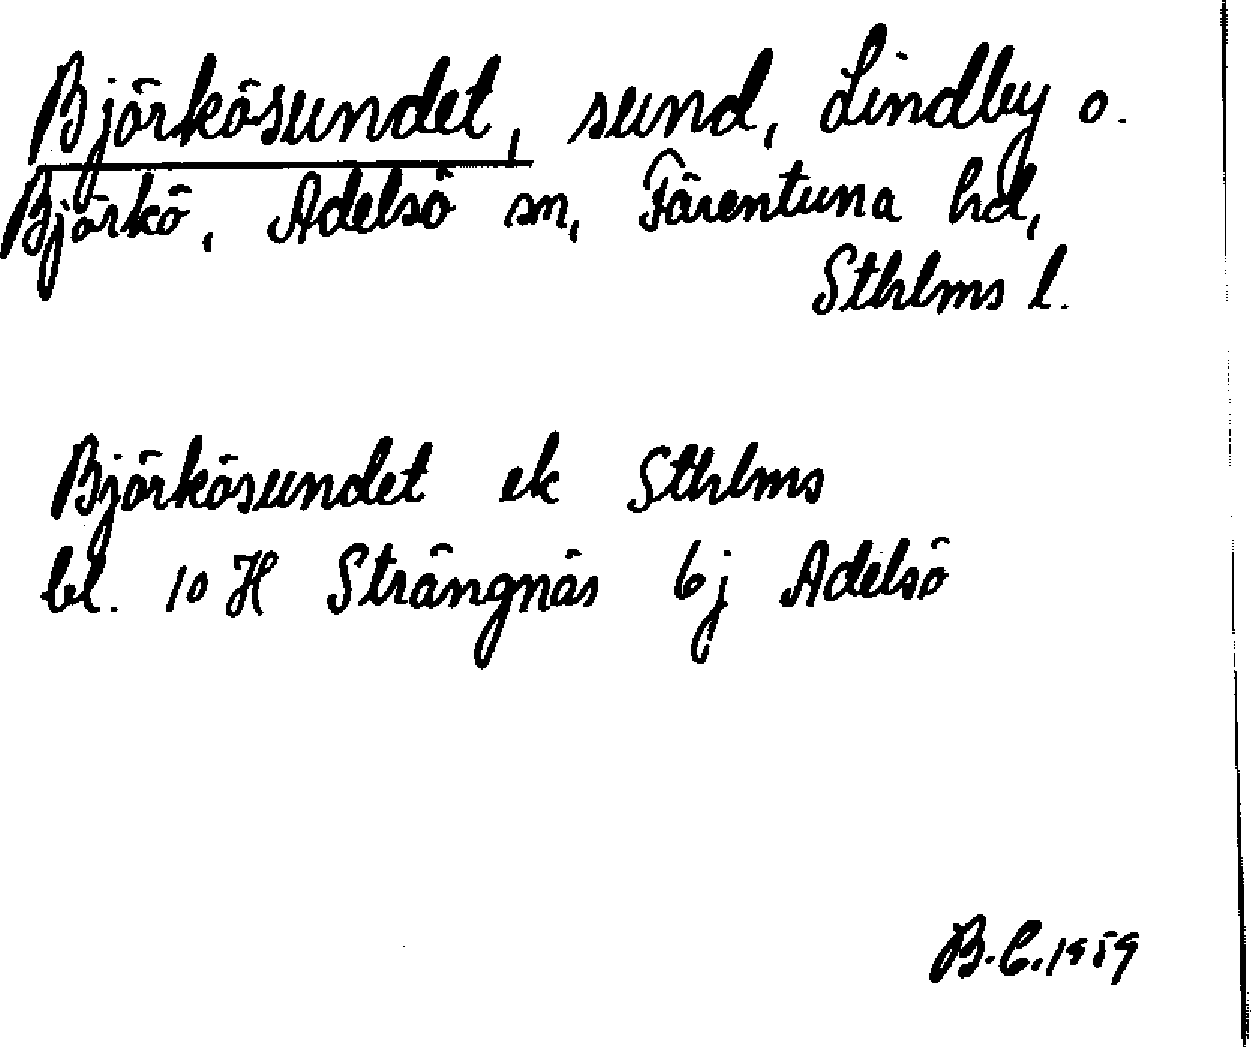 Björkösundet, sund, Lindby o.
Björkö, Adelsö sn, Färentuna hd,
Sthlms l.
Björkösundet ek Sthlms
bl. 10 H Strängnäs 6j Adelsö
B.C. 1959